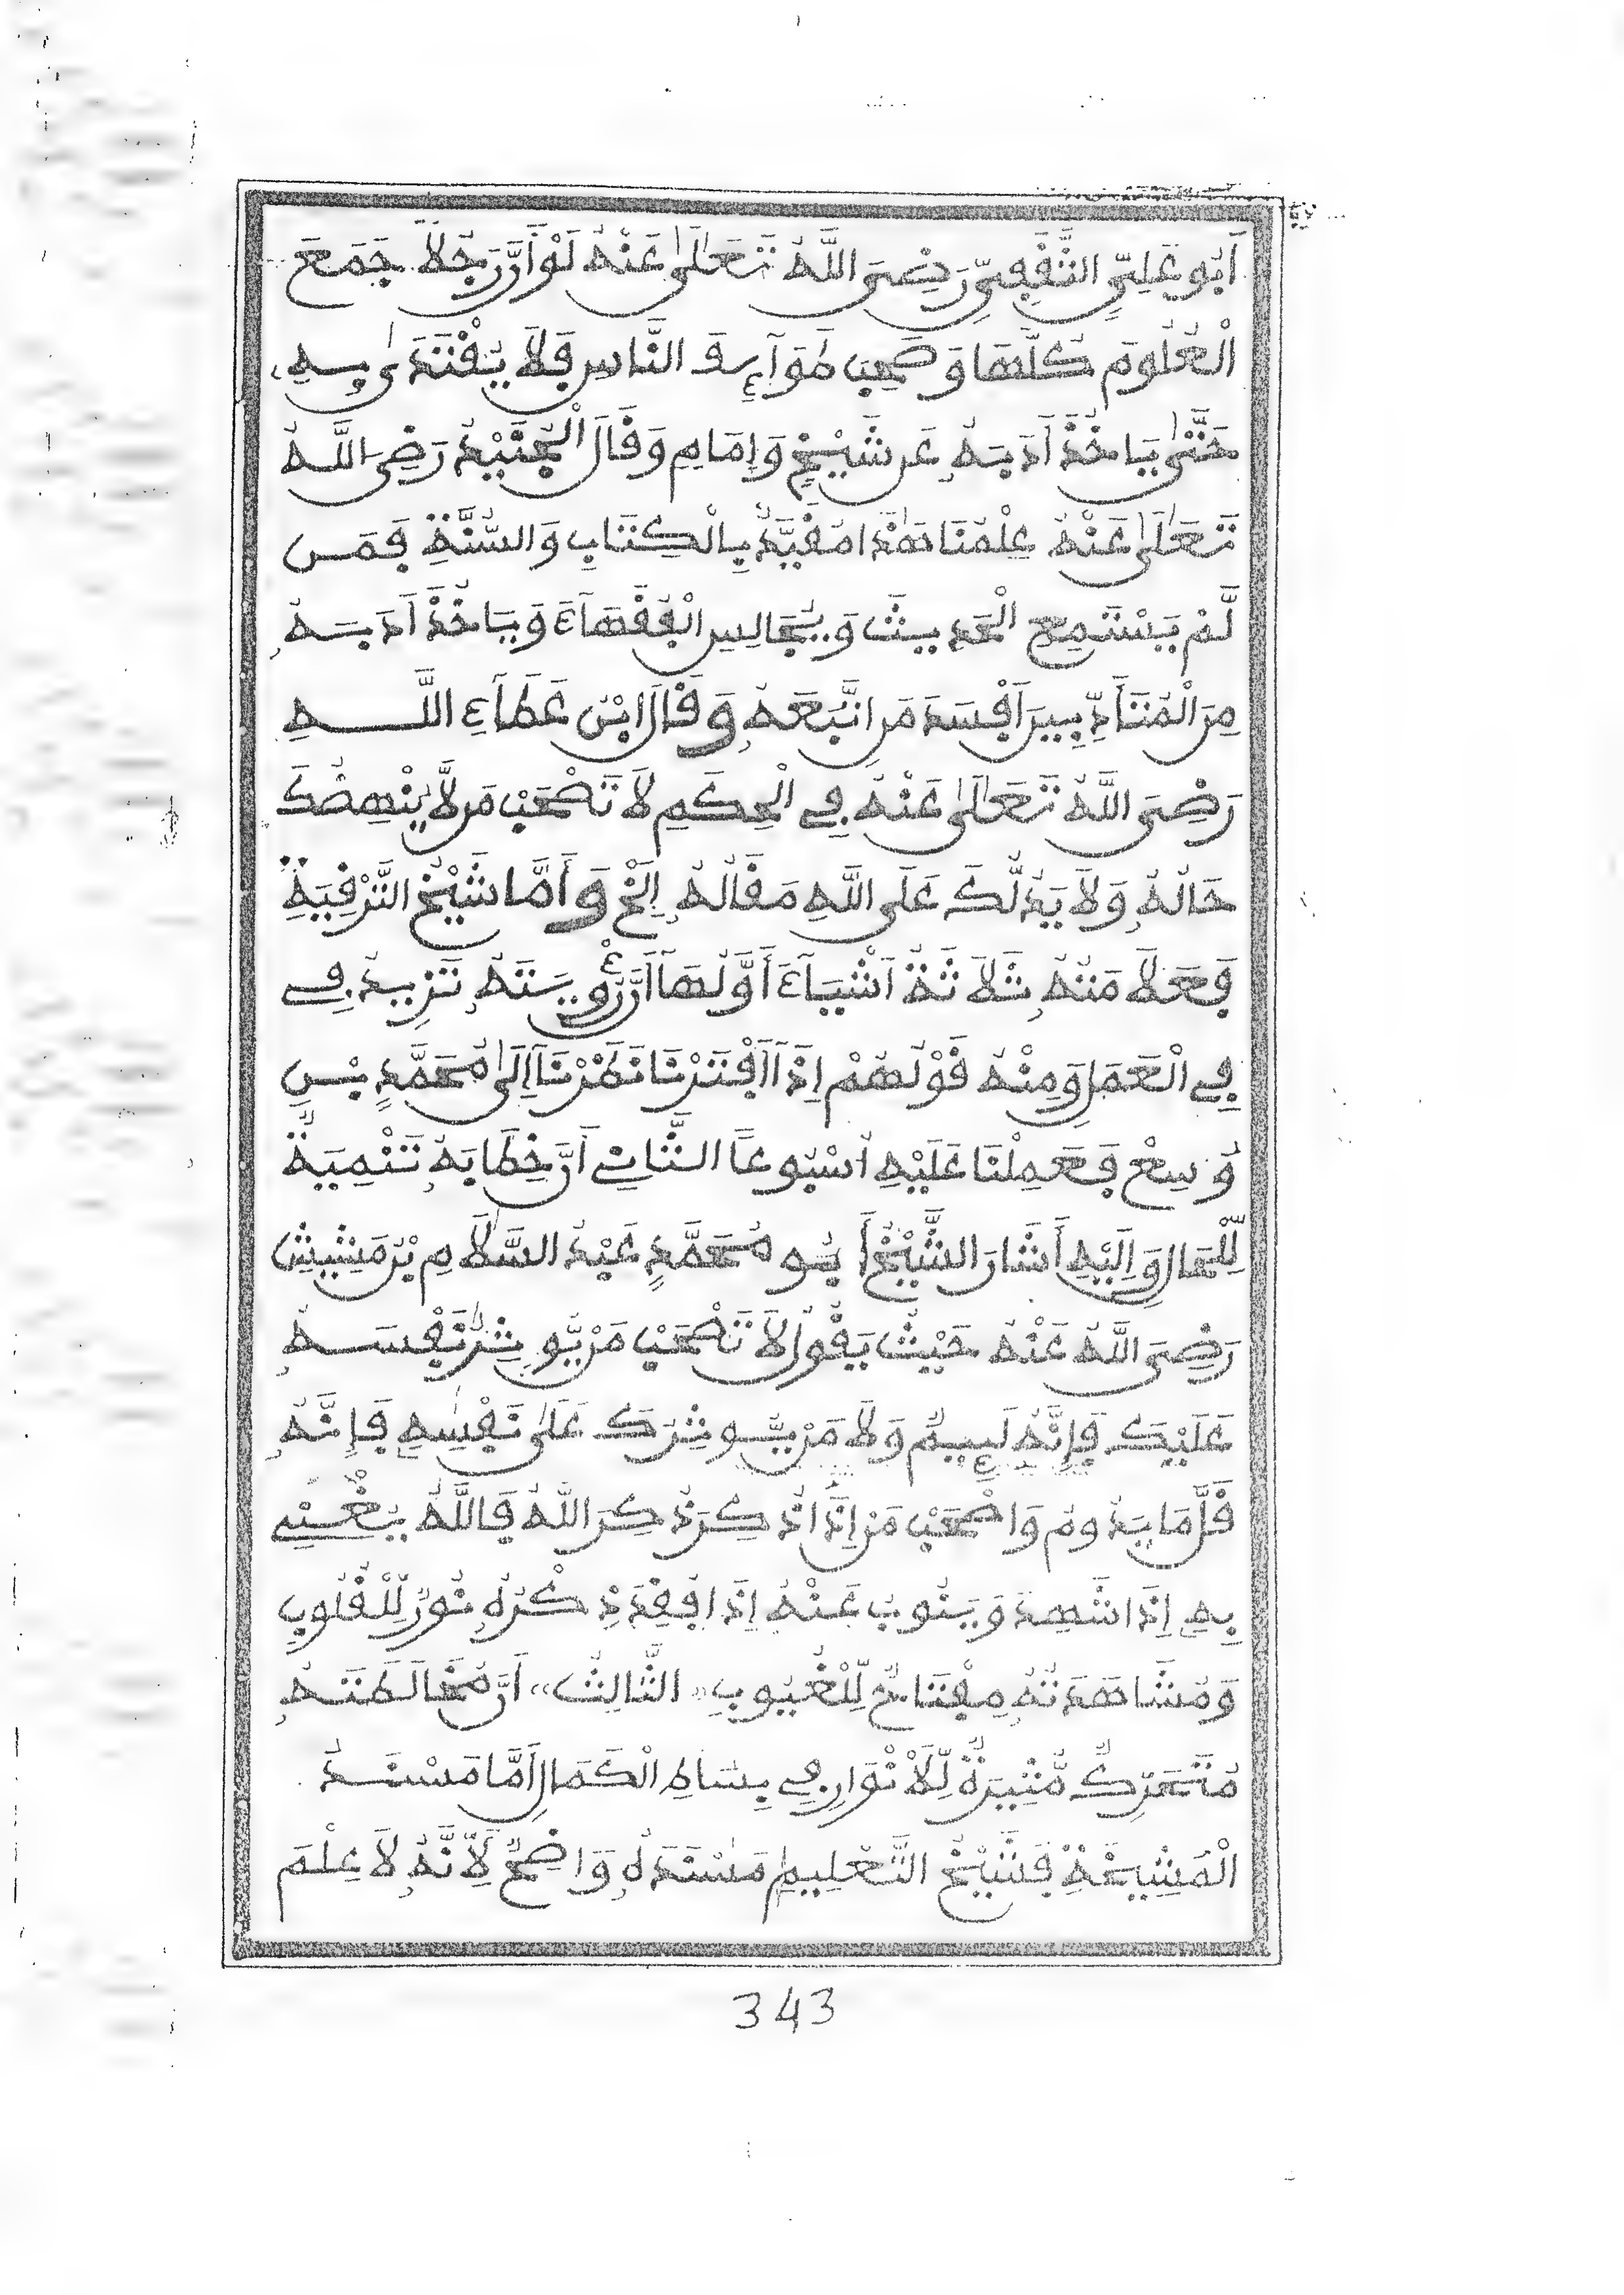 أَبُو عَلِيٍّ الثَّقَفِيّ رَضِيَ اللَّهُ تَعَالَى عَنْهُ لَوْ أَنَّ رَجُلًا جَمَعَ
الْعُلُومَ كُلَّهَا وَصَحِبَ طَوَآئِفَ النَّاسِ فَلَا يُقْتَدَى بِهِ
حَتَّى يَاخُذَ أَدَبَهُ عَن شَيْخٍ وَإِمَامٍ وَقَالَ الْجُنَيْدُ رَضِيَ اللَّهُ
تَعَالَى عَنْهُ عِلْمُنَا هَذَا مُقَيَّدٌ بِالْكِتَابِ وَالسُّنَّةِ فَمَن
لَّمْ يَسْتَمِعِ الْحَدِيثَ وَيُجَالِسِ الْفُقَهَآءَ وَيَاخُذْ أَدَبَهُ
مِنَ الْمُتَأَدِّبِينَ أَفْسَدَ مَنِ اتَّبَعَهُ وَقَالَ ابْنُ عَطَآءِ اللَّهِ
رَضِيَ اللَّهُ تَعَالَى عَنْهُ فِي الْحِكَمِ لَا تَصْحَبْ مَن لَّا يُنْهِضُكَ
حَالُهُ وَلَا يَدُلُّكَ عَلَى اللَّهِ مَقَالُهُ إِلَخْ وَأَمَّا شَيْخُ التَّرْقِيَةِ
فَعَلَامَتُهُ ثَلَاثَةُ أَشْيَآءَ أَوَّلُهَآ أَنَّ رُؤْيَتَهُ تَزِيدُ فِي
فِي الْعَمَلِ وَمِنْهُ قَوْلُهُمْ إِذَآ افْتَرْنَا نَظَرْنَآ إِلَى مُحَمَّدٍ بْنِ
وَسِعْ فَعَمِلْنَا عَلَيْهِ أُسْبُوعًا الثَّانِي أَنَّ خِطَابَهُ تَنْمِيَةٌ
لِّلْحَالِ وَإِلَيْهِ أَشَارَ الشَّيْخُ أَبُو مُحَمَّدٍ عَبْدُ السَّلَامِ بْنُ مَشِيشٍ
رَضِيَ اللَّهُ عَنْهُ حَيْثُ يَقُولُ لَا تَصْحَبْ مَن يُّوثِرُ نَفْسَهُ
عَلَيْكَ فَإِنَّهُ لَئِيمٌ وَلَا مَن يُّوثِرُكَ عَلَى نَفْسِهِ فَإِنَّهُ
قَلَّمَا يَدُومُ وَاصْحَبْ مَنْ إِذَا ذُكِرَ ذُكِرَ اللَّهُ فَاللَّهُ يُغْنِي
بِهِ إِذَا شُهِدَ وَيَنُوبُ عَنْهُ إِذَا فُقِدَ ذِكْرُهُ نُورٌ لِّلْقُلُوبِ
وَمُشَاهَدَتُهُ مِفْتَاحٌ لِّلْغُيُوبِ «الثَّالِثُ» أَنَّ مُخَالَطَتَهُ
مُتَحَرِّكٌ مُّنِيرَةٌ لِّلْأَنْوَارِ فِي بِسَاطِ الْكَمَالِ أَمَّا مَسْنَدُ
الْمَشِيخَةِ فَشَيْخُ التَّعْلِيمِ مَسْنَدُهُ وَاضِحٌ لِّأَنَّهُ لَا عِلْمَ
343